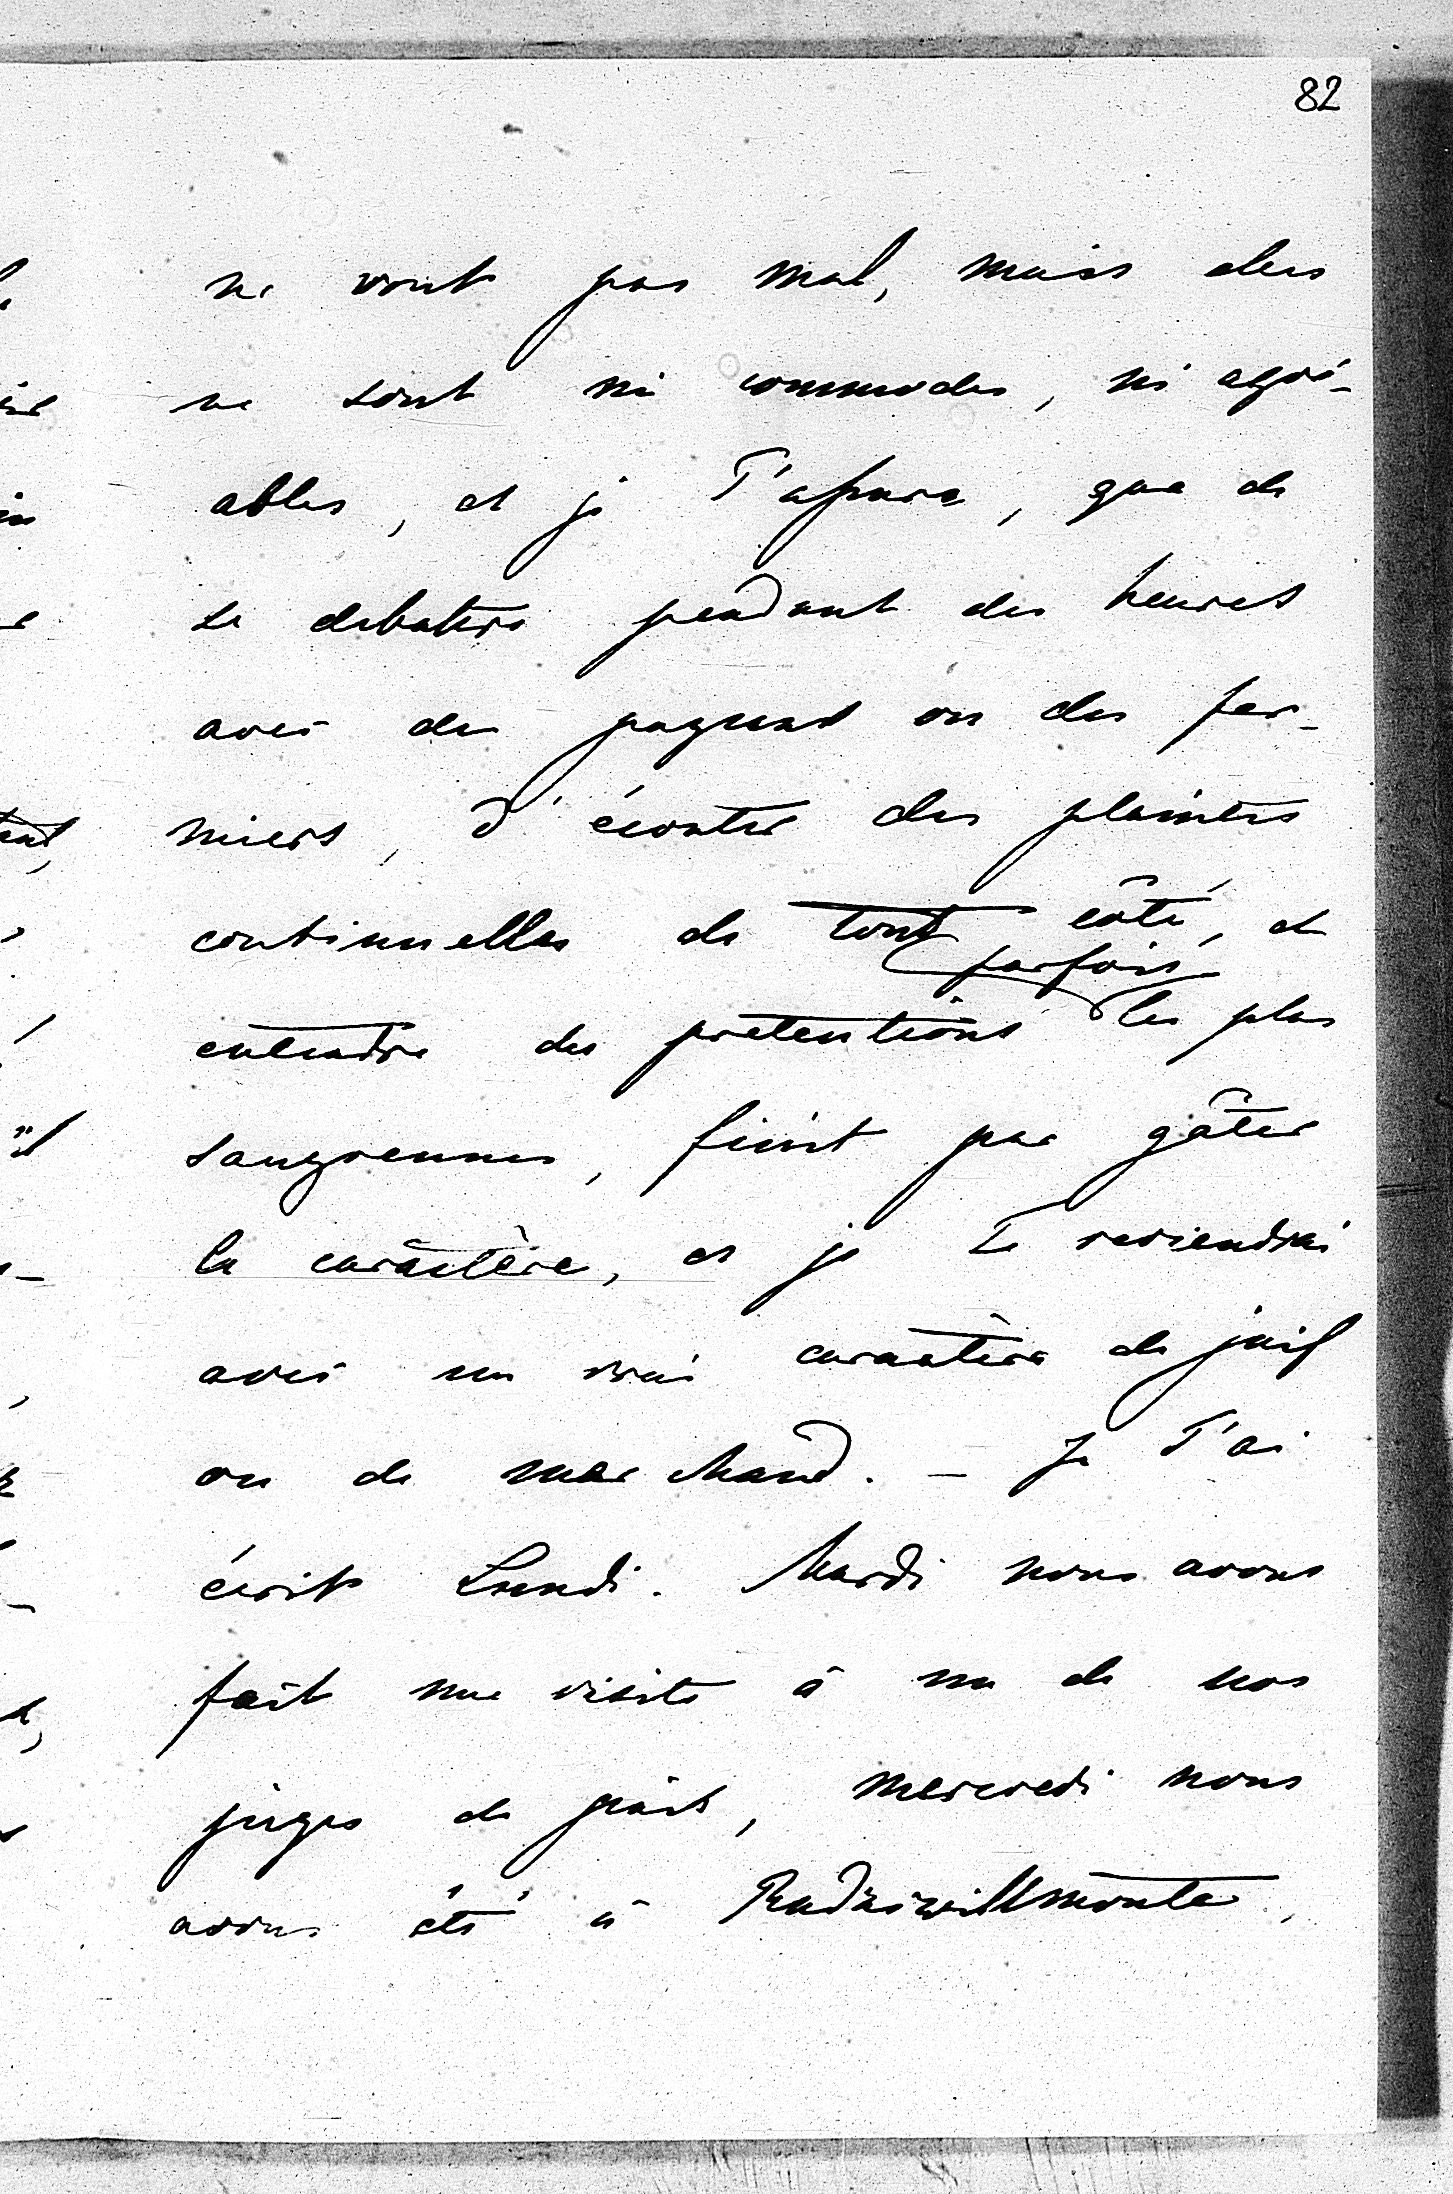 82
ne vont pas mal, mais elles
ne sont ni commodes, ni agré-
ables, et je T'assure, que de
se debattre pendant des heures
avec des paysans ou des fer-
miers, d'écouter des plaintes
continuelles de tout côté, et
parfois
entendre des pretentions les plus
saugrennues, finit par gâter
le caractère, et je Te reviendrai
avec un vrai caractère de juif
ou de marchand. – Je T'ai
écrit Lundi. Mardi nous avons
fait une visite à un de nos
juges de paix, mercredi nous
avons été à Radziwillmonte,